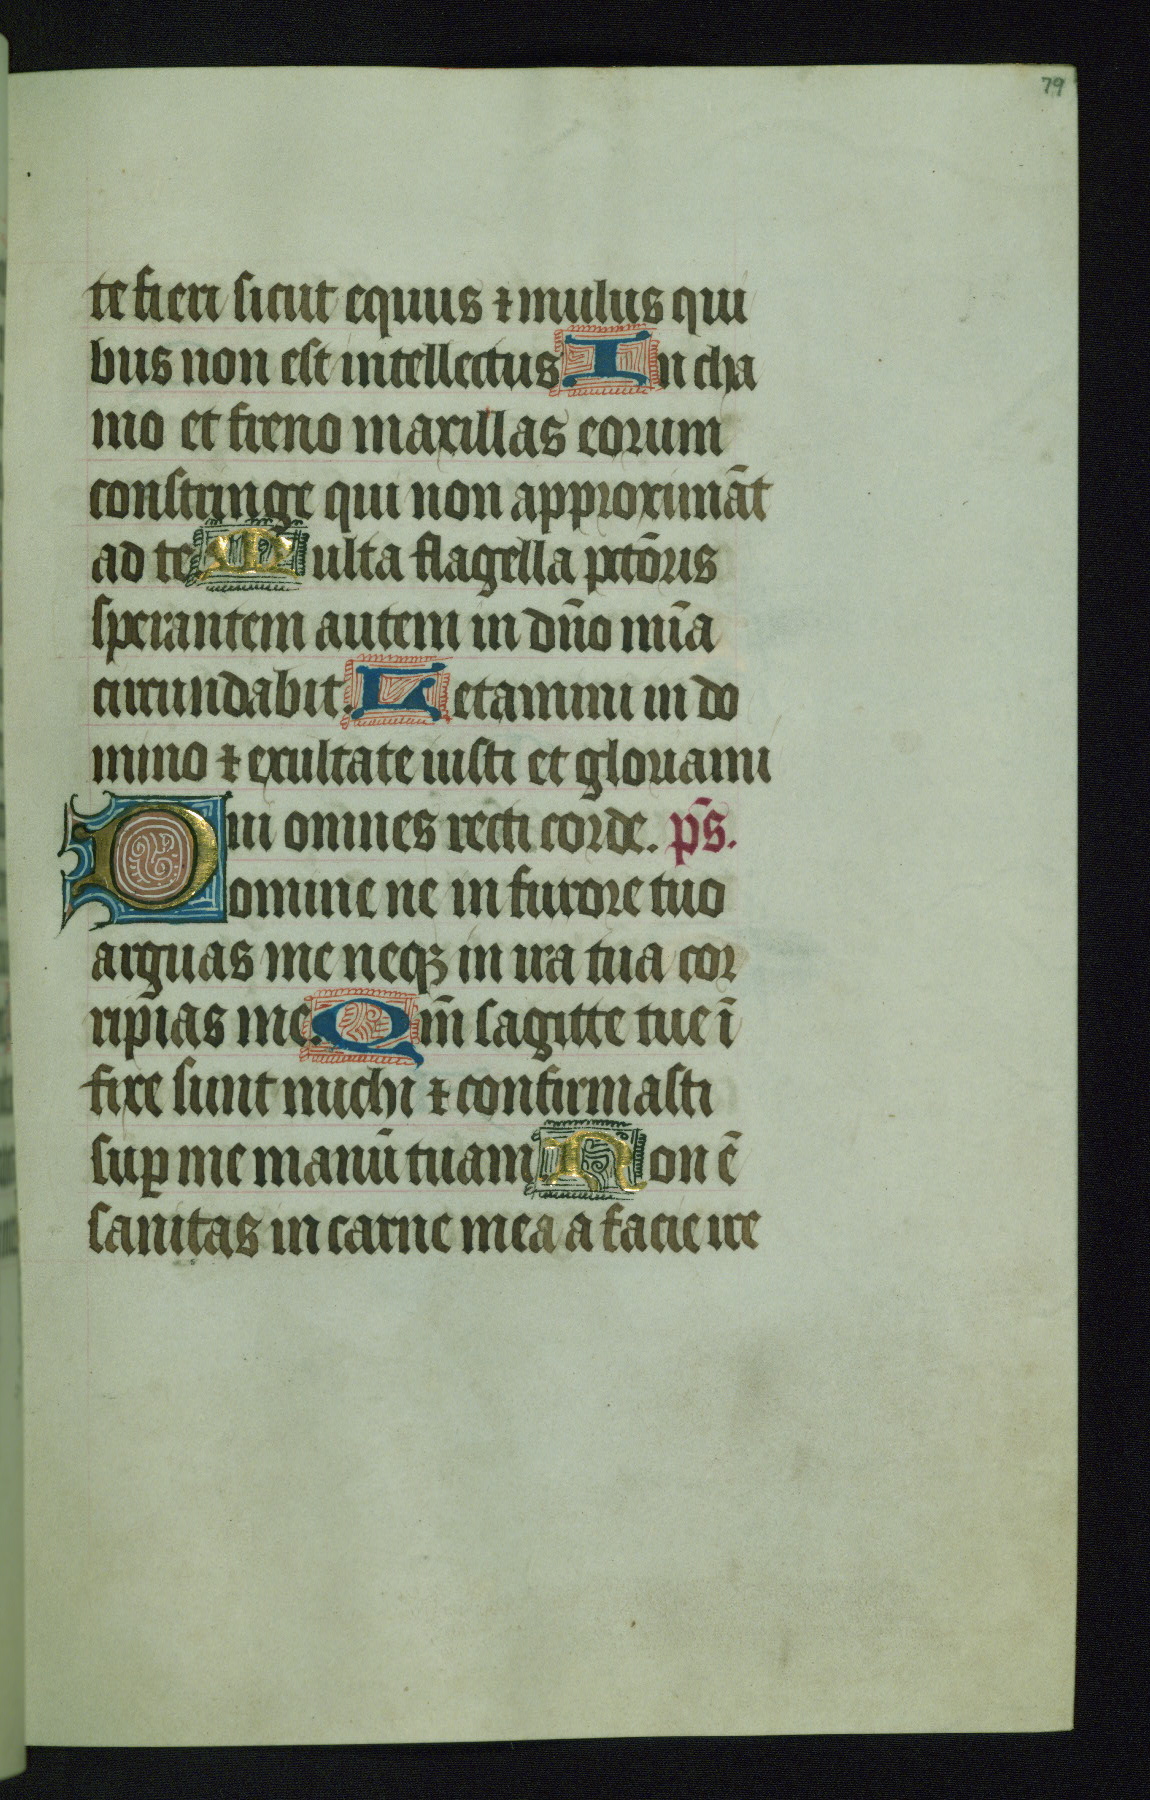 79
te fieri sicut equus ⁊ mulus qui
bus non est intellectus In cha
mo et freno maxillas eorum
constringe qui non approximāt
ad te Multa flagella pctōris
sperantem autem in dn̄o mīa
circundabit. Letamini in do
mino ⁊ exultate iusti et gloriami
ni omnes recti corde. ps̄.
Domine ne in furore tuo
arguas me neqꝫ in ira tua cor
ripias me. Qm̄ sagitte tue ī
fixe sunt michi ⁊ confirmasti
suꝑ me manū tuam Non ē
sanitas in carne mea a facie ire